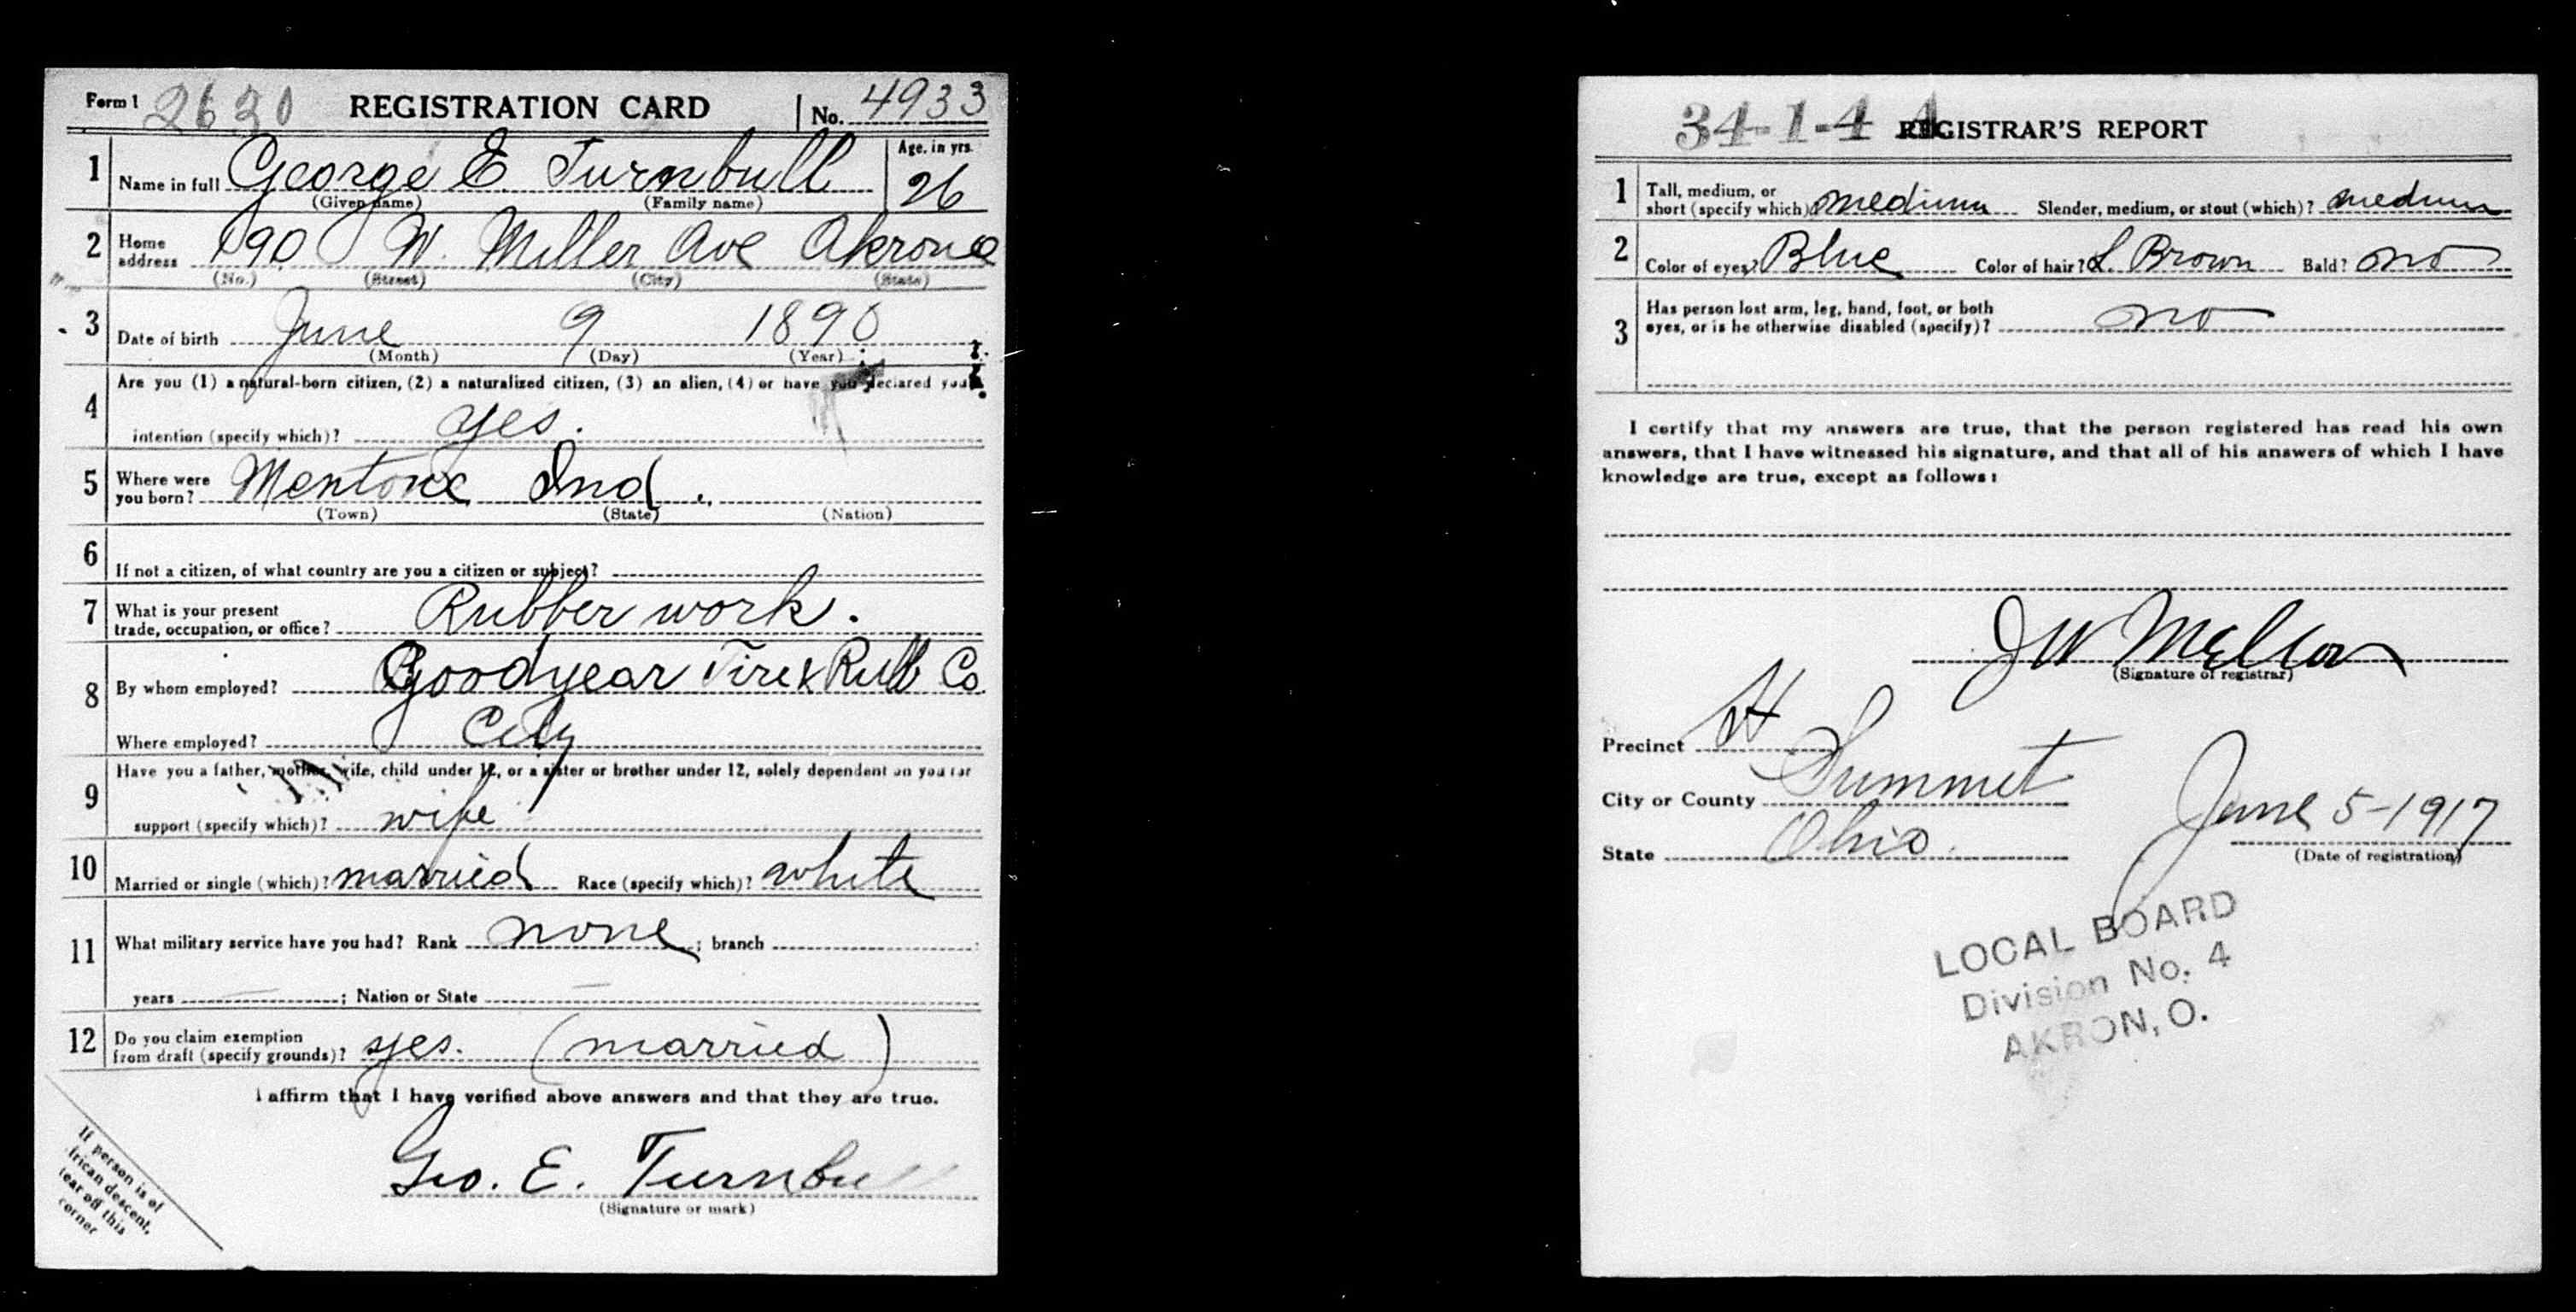 Form 1 2630 REGISTRATION CARD No. 4933
1 Name in full George E. Turnbull Age, in yrs. 26
(Given name) (Family name)
2 Home address 190 W. Miller Ave Akron O
(No.) (Street) (City) (State)
3 Date of birth June 9 1890
(Month) (Day) (Year)
4 Are you (1) a natural-born citizen, (2) a naturalized citizen, (3) an alien, (4) or have you declared your
intention (specify which)? yes.
5 Where were you born? Mentone Ind.
(Town) (State) (Nation)
6 If not a citizen, of what country are you a citizen or subject?
7 What is your present trade, occupation, or office? Rubber work.
8 By whom employed? Goodyear Tire & Rub Co
Where employed? City
9 Have you a father, mother, wife, child under 12, or a sister or brother under 12, solely dependent on you for
support (specify which)? wife
10 Married or single (which)? married Race (specify which)? white
11 What military service have you had? Rank none ; branch
years — ; Nation or State —
12 Do you claim exemption from draft (specify grounds)? yes. (married)
I affirm that I have verified above answers and that they are true.
Geo. E. Turnbull
(Signature or mark)
If person is of
African descent,
tear off this
corner
34-1-4 A REGISTRAR'S REPORT
1 Tall, medium, or short (specify which)? medium Slender, medium, or stout (which)? medium
2 Color of eyes? Blue Color of hair? L. Brown Bald? no
3 Has person lost arm, leg, hand, foot, or both
eyes, or is he otherwise disabled (specify)? no
I certify that my answers are true, that the person registered has read his own
answers, that I have witnessed his signature, and that all of his answers of which I have
knowledge are true, except as follows:
(Signature of registrar)
Precinct H
City or County Summit
State Ohio
June 5-1917
(Date of registration)
LOCAL BOARD
Division No. 4
AKRON, O.